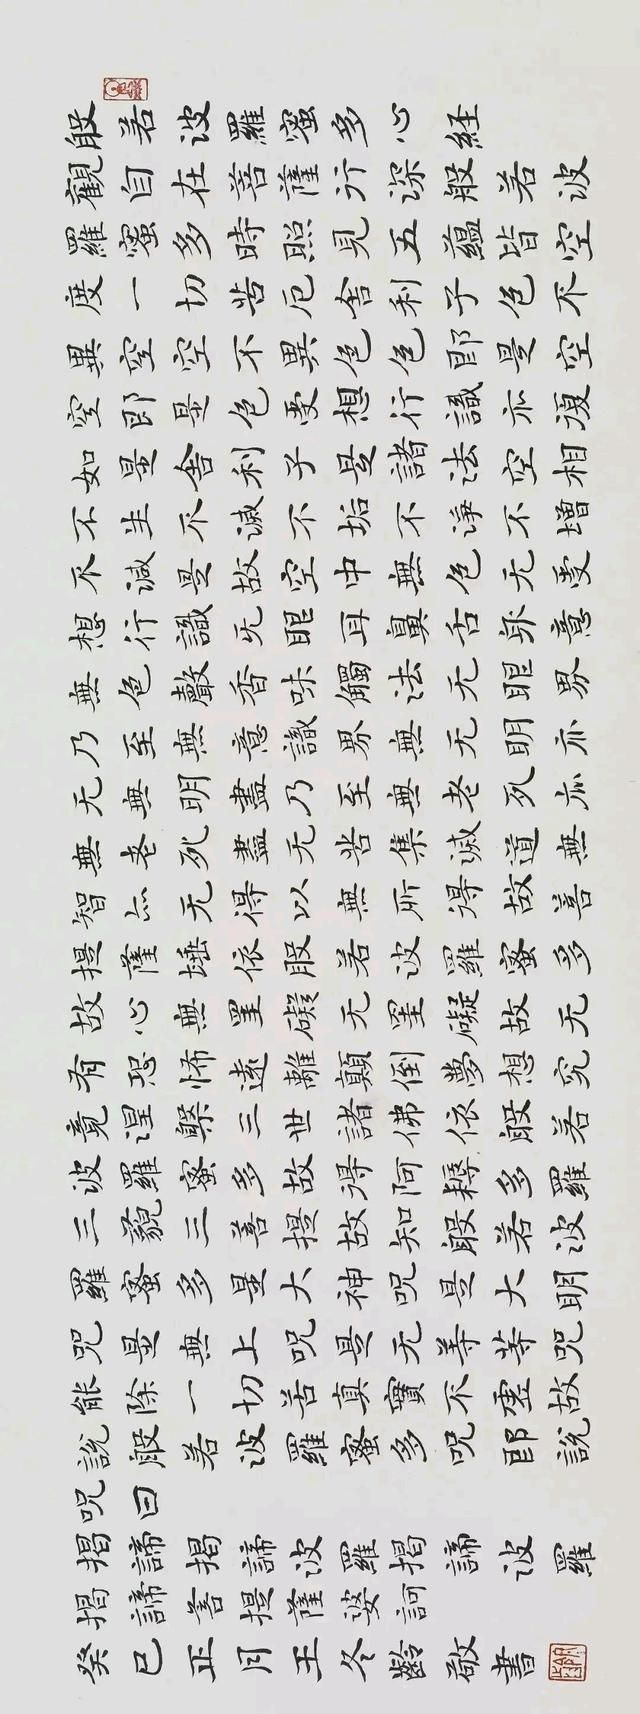 般若波羅蜜多心経
觀自在菩薩行深般若波
羅蜜多時照見五蘊皆空
度一切苦厄舍利子色不
異空空不異色色即是空
空即是色受想行識亦復
如是舍利子是諸法空相
不生不滅不垢不淨不增
不減是故空中無色無受
想行識无眼耳鼻舌身意
無色聲香味觸法无眼界
乃至無意識界無无明亦
无無明盡乃至無老死亦
無老死盡无苦集滅道無
智亦无得以無所得故菩
提薩埵依般若波羅蜜多
故心無罣礙無罣礙故无
有恐怖遠離顛倒夢想究
竟涅槃三世諸佛依般若
波羅蜜多故得阿耨多羅
三藐三菩提故知般若波
羅蜜多是大神咒是大明
咒是無上咒是无等等咒
能除一切苦真實不虛故
說般若波羅蜜多咒即說
咒曰
揭諦揭諦波羅揭諦波羅
揭諦菩提薩婆訶
癸巳正月王冬齡敬書